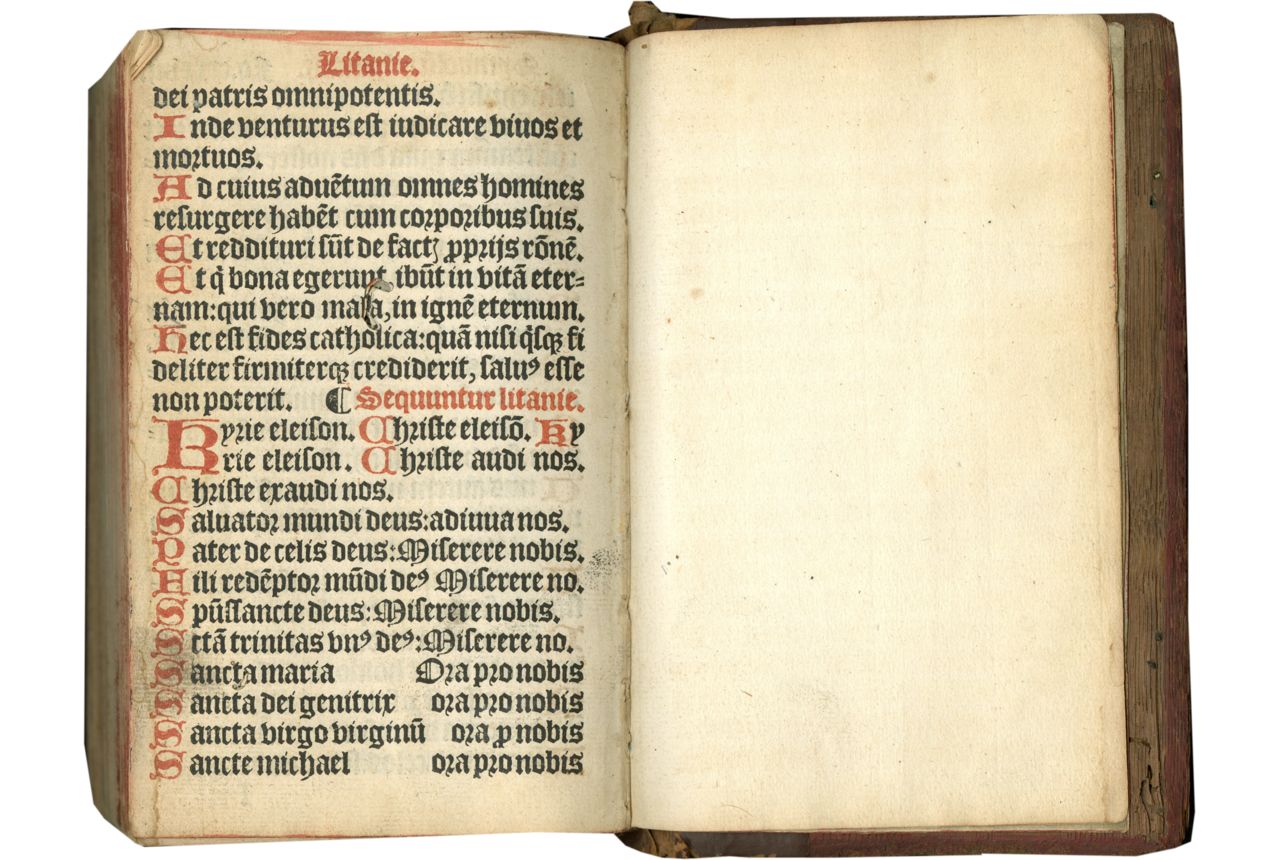 Litanie.
dei patris omnipotentis.
Inde venturus est iudicare viuos et
mortuos.
Ad cuius aduētum omnes homines
resurgere habēt cum corporibus suis.
Et reddituri sūt de factꝭ ꝓprijs rōnē.
Et q̄ bona egerunt, ibūt in vitā eter⸗
nam: qui vero mala, in ignē eternum.
Hec est fides catholica: quā nisi q̄sqꝫ fi
deliter firmiterqꝫ crediderit, saluꝰ esse
non poterit. ¶ Sequuntur litanie.
Kyrie eleison. Christe eleisō. Ky
rie eleison. Christe audi nos.
Christe exaudi nos.
Saluator mundi deus: adiuua nos.
Pater de celis deus: Miserere nobis.
Fili redēptor mūdi deꝰ Miserere no.
Spūssancte deus: Miserere nobis.
Sctā trinitas vnꝰ deꝰ: Miserere no.
Sancta maria Ora pro nobis
Sancta dei genitrix ora pro nobis
Sancta virgo virginū ora ꝓ nobis
Sancte michael ora pro nobis